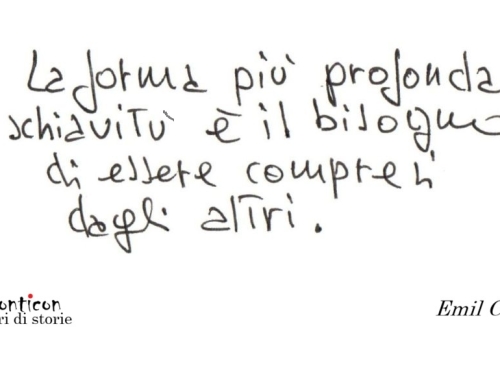 La forma più profonda
schiavitù è il bisogno
di essere compresi
dagli altri.
onticon
ri di storie
Emil C